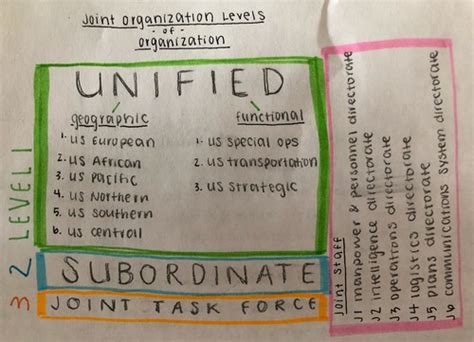 Joint Organization Levels
- of -
Organization
UNIFIED
geographic
1. US European
2. US African
3. US Pacific
4. US Northern
5. US Southern
6. US Centrall
functional
1. US special ops
2. US transportation
3. US strategic
LEVEL 1
2 SUBORDINATE
3 JOINT TASK FORCE
Joint Staff
J1 manpower & personnel directorate
J2 intelligence directorate
J3 operations directorate
J4 logistics directorate
J5 plans directorate
J6 communications system directorate